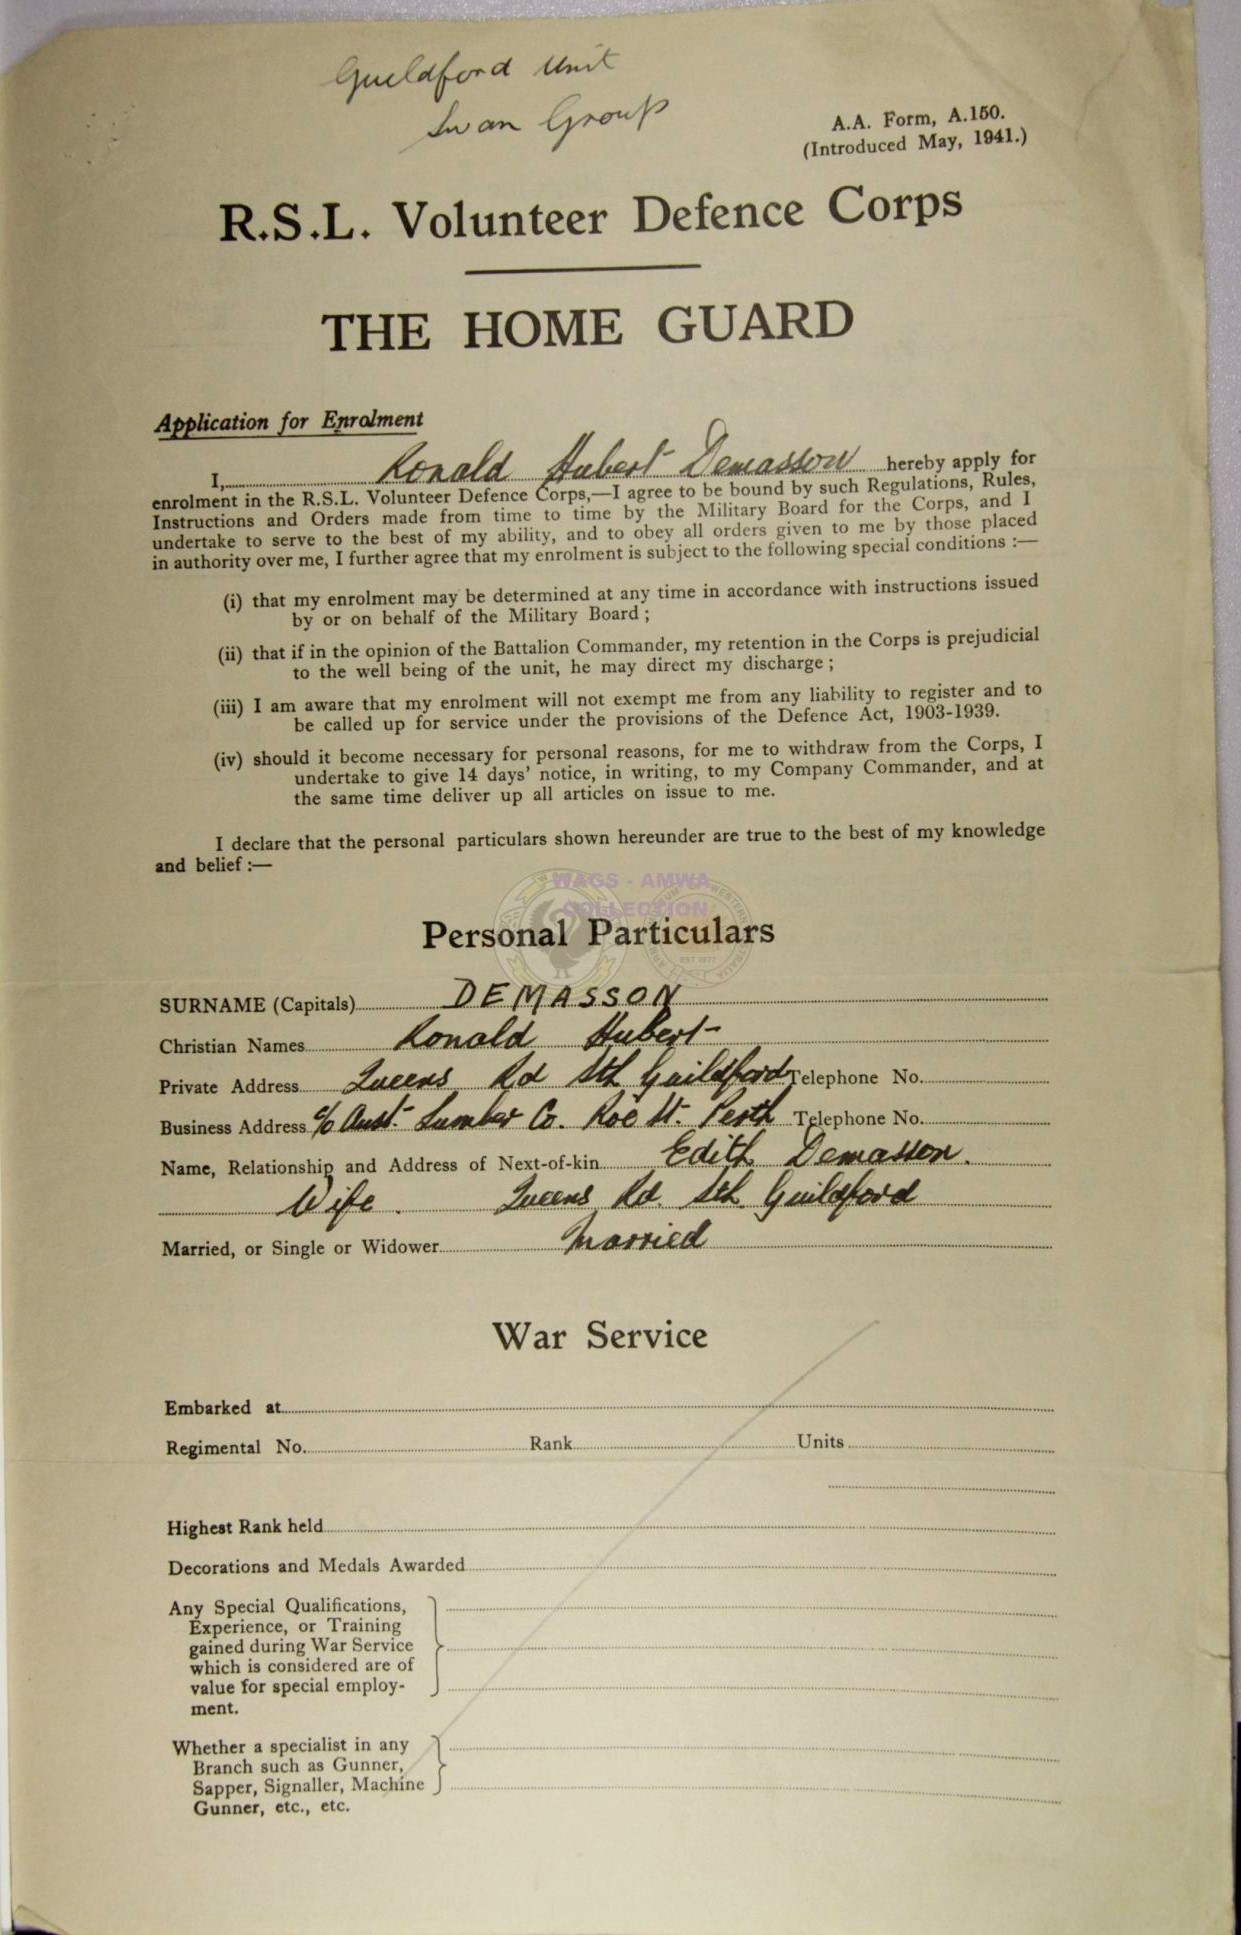 Guildford Unit
Swan Group
A.A. Form, A.150.
(Introduced May, 1941.)
R.S.L. Volunteer Defence Corps
THE HOME GUARD
Application for Enrolment
I, Ronald Hubert Demasson hereby apply for
enrolment in the R.S.L. Volunteer Defence Corps,—I agree to be bound by such Regulations, Rules,
Instructions and Orders made from time to time by the Military Board for the Corps, and I
undertake to serve to the best of my ability, and to obey all orders given to me by those placed
in authority over me, I further agree that my enrolment is subject to the following special conditions :—
(i) that my enrolment may be determined at any time in accordance with instructions issued
by or on behalf of the Military Board ;
(ii) that if in the opinion of the Battalion Commander, my retention in the Corps is prejudicial
to the well being of the unit, he may direct my discharge ;
(iii) I am aware that my enrolment will not exempt me from any liability to register and to
be called up for service under the provisions of the Defence Act, 1903-1939.
(iv) should it become necessary for personal reasons, for me to withdraw from the Corps, I
undertake to give 14 days' notice, in writing, to my Company Commander, and at
the same time deliver up all articles on issue to me.
I declare that the personal particulars shown hereunder are true to the best of my knowledge
and belief :—
WAGS - AMWA
COLLECTION
Personal Particulars
SURNAME (Capitals) DEMASSON
Christian Names Ronald Hubert
Private Address Queens Rd Sth Guildford Telephone No.
Business Address c/o Aust. Lumber Co. Roe St. Perth Telephone No.
Name, Relationship and Address of Next-of-kin Edith Demasson.
Wife. Queens Rd. Sth. Guildford
Married, or Single or Widower Married
War Service
Embarked at
Regimental No. Rank Units
Highest Rank held
Decorations and Medals Awarded
Any Special Qualifications,
Experience, or Training
gained during War Service
which is considered are of
value for special employ-
ment.
Whether a specialist in any
Branch such as Gunner,
Sapper, Signaller, Machine
Gunner, etc., etc.